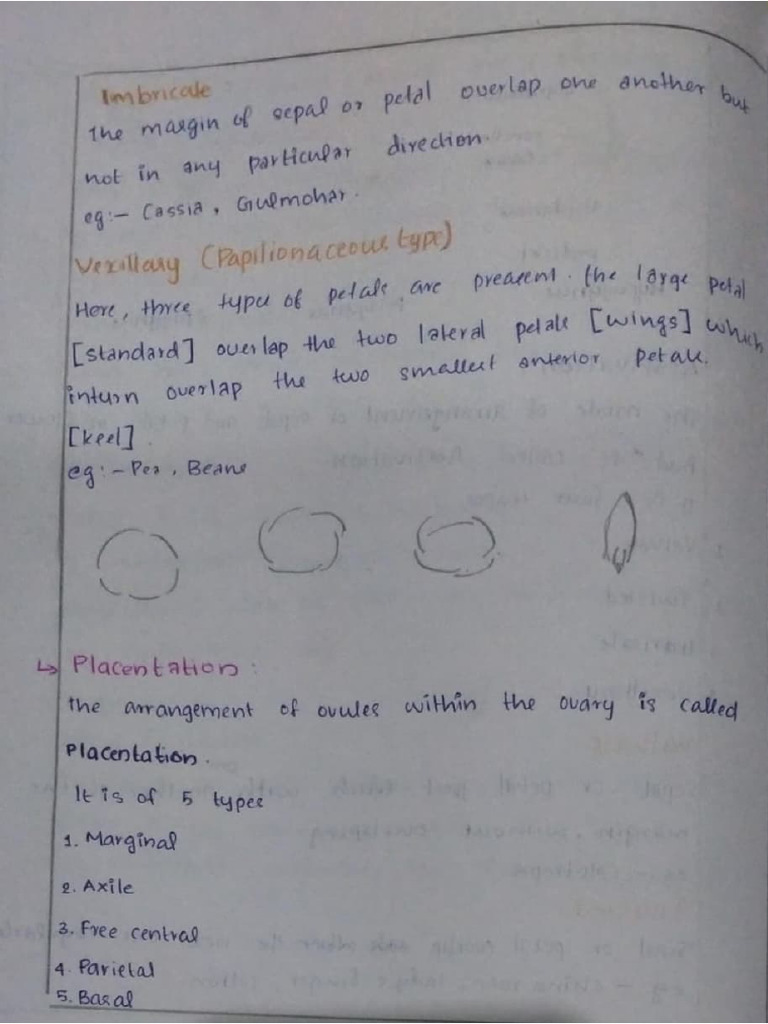 Imbricate
The margin of sepal or petal overlap one another but
not in any particular direction.
eg:- Cassia, Gulmohar.
Vexillary (Papilionaceous type)
Here, three type of petals are preasent. the large petal
[standard] overlap the two lateral petals [wings] which
inturn overlap the two smallest anterior petals.
[keel].
eg:- Pea, Beans
↳ Placentation:
the arrangement of ovules within the ovary is called
Placentation.
It is of 5 types
1. Marginal
2. Axile
3. Free central
4. Parietal
5. Basal